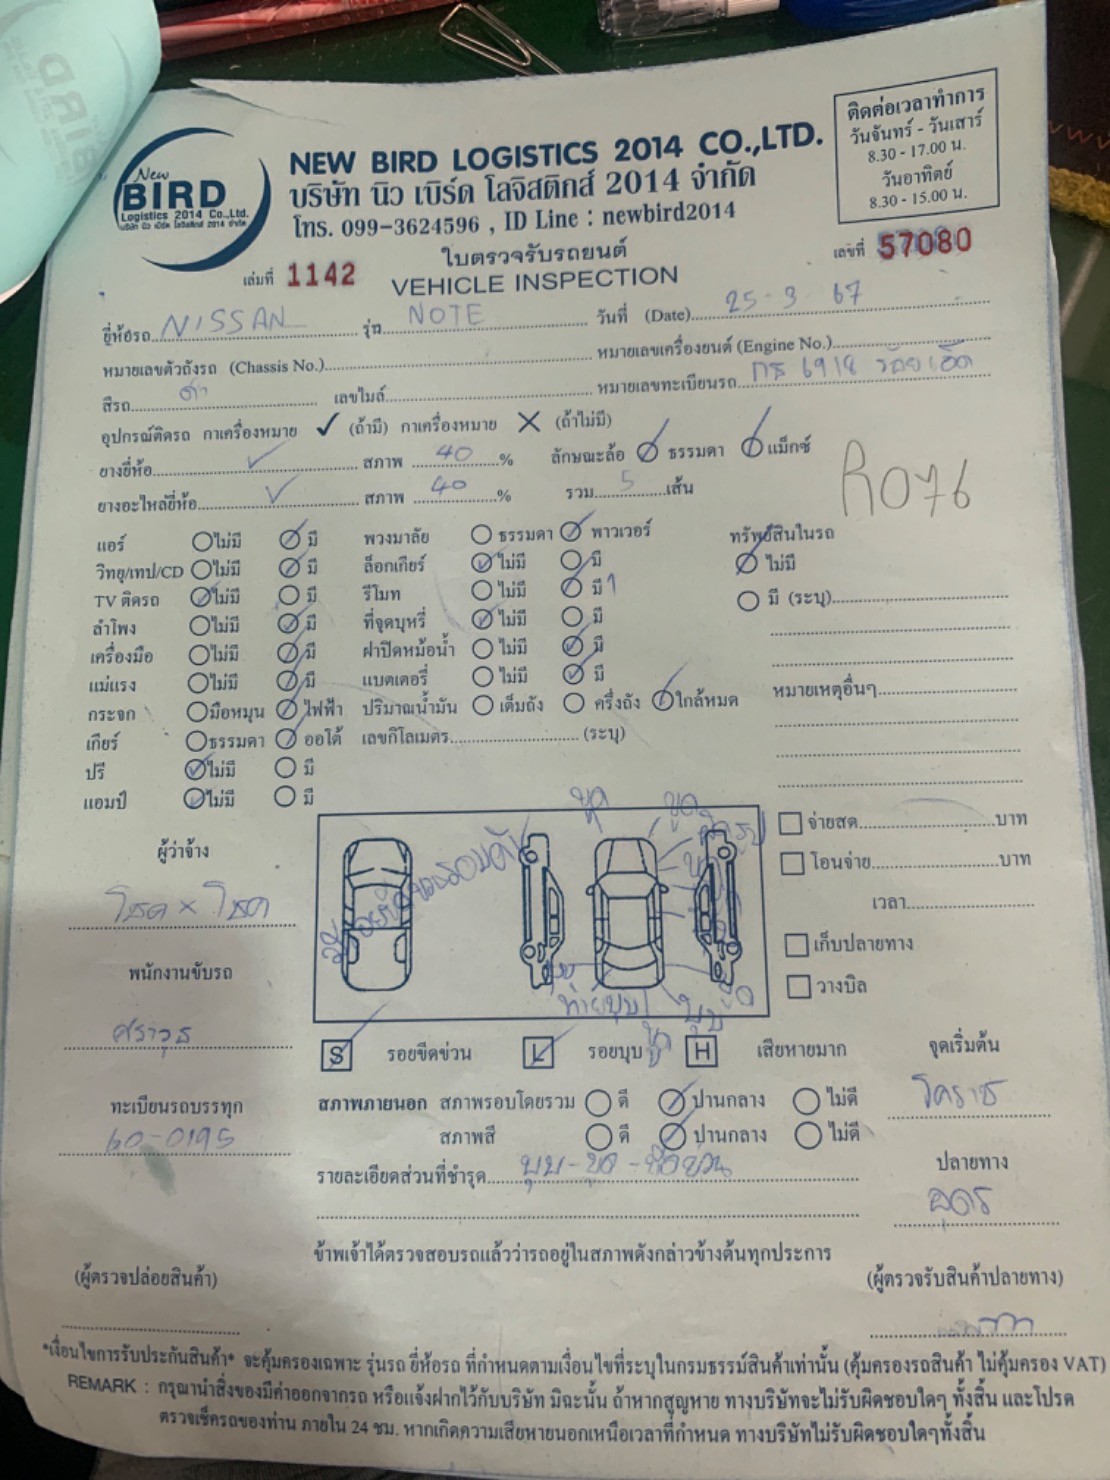 New
BIRD
Logistics 2014 Co.,Ltd.
บริษัท นิว เบิร์ด โลจิสติกส์ 2014 จำกัด
NEW BIRD LOGISTICS 2014 CO.,LTD.
บริษัท นิว เบิร์ด โลจิสติกส์ 2014 จำกัด
โทร. 099-3624596 , ID Line : newbird2014
ติดต่อเวลาทำการ
วันจันทร์ - วันเสาร์
8.30 - 17.00 น.
วันอาทิตย์
8.30 - 15.00 น.
ใบตรวจรับรถยนต์
เล่มที่ 1142 VEHICLE INSPECTION เลขที่ 57080
ยี่ห้อรถ NISSAN รุ่น NOTE วันที่ (Date) 25-3 67
หมายเลขตัวถังรถ (Chassis No.) หมายเลขเครื่องยนต์ (Engine No.)
สีรถ ดำ เลขไมล์ หมายเลขทะเบียนรถ กร 6918 ร้อยเอ็ด
อุปกรณ์ติดรถ กาเครื่องหมาย ✓ (ถ้ามี) กาเครื่องหมาย ✕ (ถ้าไม่มี)
ยางยี่ห้อ ✓ สภาพ 40 % ลักษณะล้อ ธรรมดา แม็กซ์
ยางอะไหล่ยี่ห้อ ✓ สภาพ 40 % รวม 5 เส้น
R076
แอร์ ไม่มี มี พวงมาลัย ธรรมดา พาวเวอร์ ทรัพย์สินในรถ
วิทยุ/เทป/CD ไม่มี มี ล็อกเกียร์ ไม่มี มี ไม่มี
TV ติดรถ ไม่มี มี รีโมท ไม่มี มี 1 มี (ระบุ)
ลำโพง ไม่มี มี ที่จุดบุหรี่ ไม่มี มี
เครื่องมือ ไม่มี มี ฝาปิดหม้อน้ำ ไม่มี มี
แม่แรง ไม่มี มี แบตเตอรี่ ไม่มี มี หมายเหตุอื่นๆ
กระจก มือหมุน ไฟฟ้า ปริมาณน้ำมัน เต็มถัง ครึ่งถัง ใกล้หมด
เกียร์ ธรรมดา ออโต้ เลขกิโลเมตร (ระบุ)
ปรี ไม่มี มี
แอมป์ ไม่มี มี
ขูด ขูด
ท้ายบุบ บุบ
ผู้ว่าจ้าง
โชค × โชค
พนักงานขับรถ
ศราวุธ
ทะเบียนรถบรรทุก
60-0195
จ่ายสด บาท
โอนจ่าย บาท
เวลา
เก็บปลายทาง
วางบิล
S รอยขีดข่วน L รอยบุบ H เสียหายมาก
จุดเริ่มต้น
โคราช
สภาพภายนอก สภาพรอบโดยรวม ดี ปานกลาง ไม่ดี
สภาพสี ดี ปานกลาง ไม่ดี
รายละเอียดส่วนที่ชำรุด บุบ-ขูด-ขีดข่วน
ปลายทาง
อุดร
ข้าพเจ้าได้ตรวจสอบรถแล้วว่ารถอยู่ในสภาพดังกล่าวข้างต้นทุกประการ
(ผู้ตรวจปล่อยสินค้า) (ผู้ตรวจรับสินค้าปลายทาง)
*เงื่อนไขการรับประกันสินค้า* จะคุ้มครองเฉพาะ รุ่นรถ ยี่ห้อรถ ที่กำหนดตามเงื่อนไขที่ระบุในกรมธรรม์สินค้าเท่านั้น (คุ้มครองรถสินค้า ไม่คุ้มครอง VAT)
REMARK : กรุณานำสิ่งของมีค่าออกจากรถ หรือแจ้งฝากไว้กับบริษัท มิฉะนั้น ถ้าหากสูญหาย ทางบริษัทจะไม่รับผิดชอบใดๆ ทั้งสิ้น และโปรด
ตรวจเช็ครถของท่าน ภายใน 24 ชม. หากเกิดความเสียหายนอกเหนือเวลาที่กำหนด ทางบริษัทไม่รับผิดชอบใดๆทั้งสิ้น